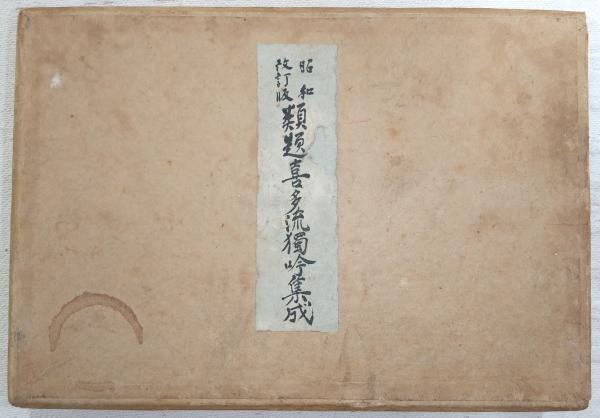 昭和
改訂版
類題喜多流獨吟集成